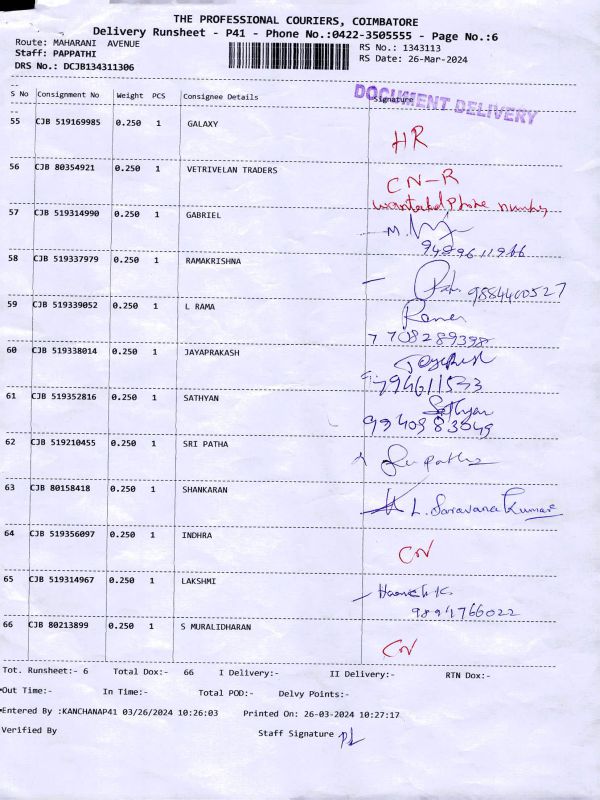 THE PROFESSIONAL COURIERS, COIMBATORE
Delivery Runsheet - P41 - Phone No.:0422-3505555 - Page No.:6
Route: MAHARANI AVENUE
Staff: PAPPATHI
DRS No.: DCJB134311306
RS No.: 1343113
RS Date: 26-Mar-2024
DOCUMENT DELIVERY
S No Consignment No Weight PCS Consignee Details Signature
55 CJB 519169985 0.250 1 GALAXY HR
56 CJB 80354921 0.250 1 VETRIVELAN TRADERS CN-R
wanted phone number
57 CJB 519314990 0.250 1 GABRIEL
9489611966
58 CJB 519337979 0.250 1 RAMAKRISHNA 9884400527
59 CJB 519339052 0.250 1 L RAMA
7708289398
60 CJB 519338014 0.250 1 JAYAPRAKASH
61 CJB 519352816 0.250 1 SATHYAN Sathyan
62 CJB 519210455 0.250 1 SRI PATHA
63 CJB 80158418 0.250 1 SHANKARAN L. Saravana Kumar
64 CJB 519356097 0.250 1 INDHRA CN
65 CJB 519314967 0.250 1 LAKSHMI
9894766022
66 CJB 80213899 0.250 1 S MURALIDHARAN CN
Tot. Runsheet:- 6 Total Dox:- 66 I Delivery:- II Delivery:- RTN Dox:-
Out Time:- In Time:- Total POD:- Delvy Points:-
Entered By :KANCHANAP41 03/26/2024 10:26:03 Printed On: 26-03-2024 10:27:17
Verified By Staff Signature